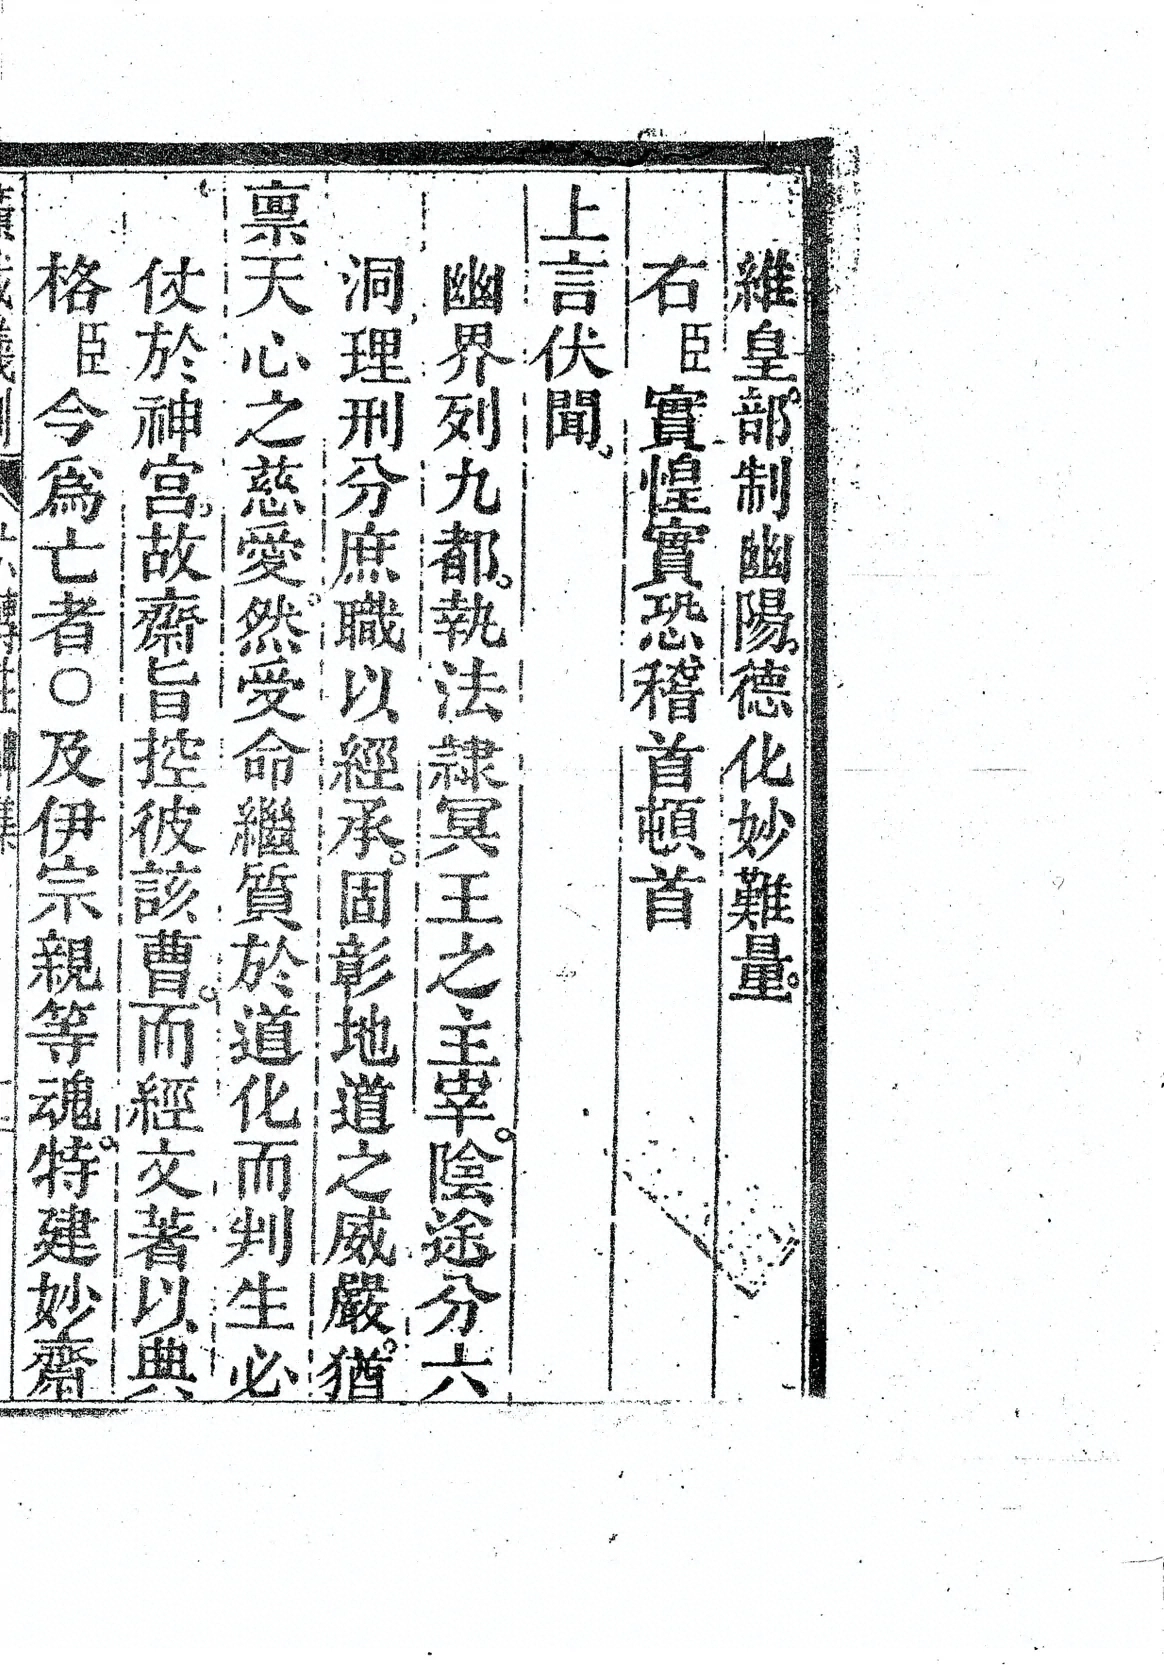 維皇。部制幽陽。德化妙難量。
右臣實惶實恐稽首頓首
上言伏聞、
幽界列九都。執法隷冥王之主宰。陰途分六
洞理刑分庶職以經承。固彰地道之威嚴。猶
禀天心之慈愛。然受命繼質於道化而判生必
仗於神宫。故齋旨控彼該曹。而經文著以典
格臣今爲亡者〇及伊宗親等魂。特建妙齋